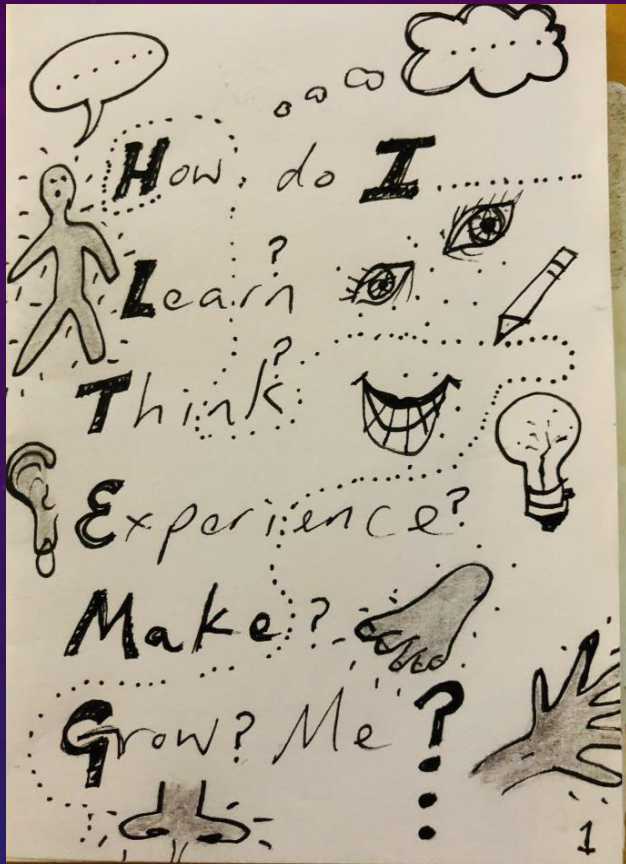 How do I..............
Learn?
Think?
Experience?
Make?
Grow? Me?
1